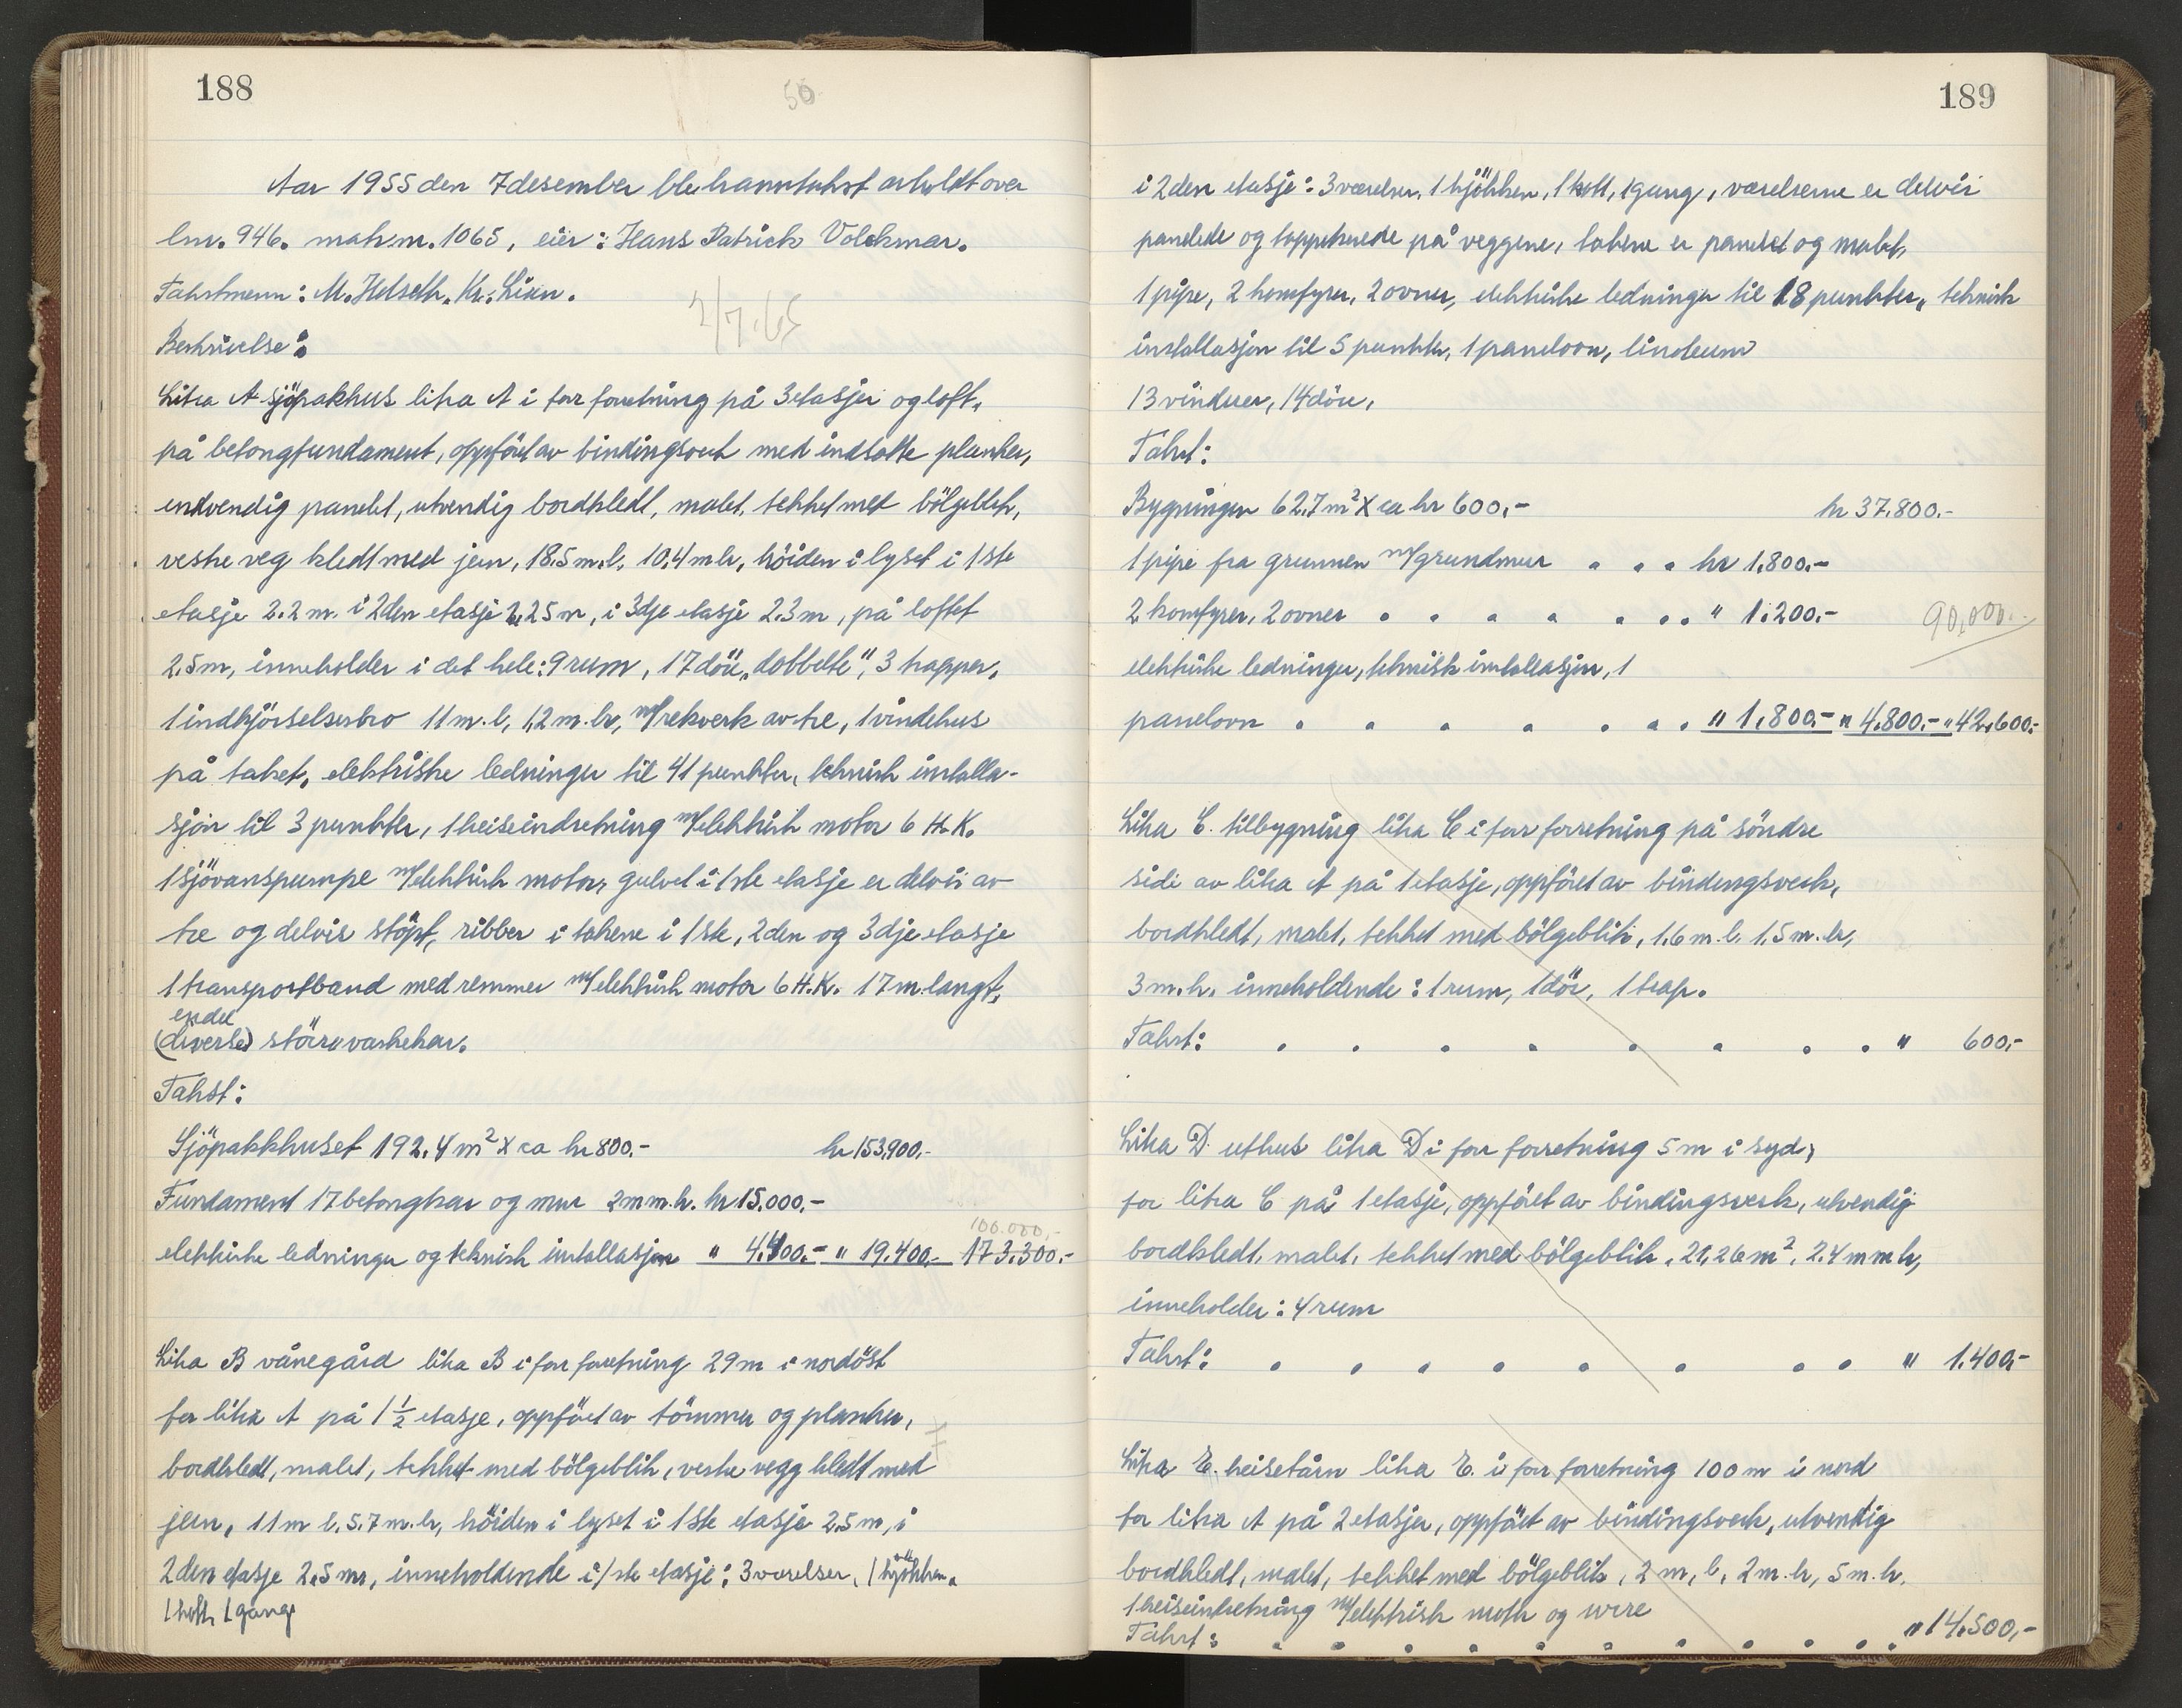 188
50
Aar 1955 den 7 desember ble branntakst avholdt over
lnr. 946. matr.nr. 1065, eier: Hans Patrick Volckmar.
Takstmenn: M. Helseth, Kr. Lian.
2/7.65
Beskrivelse:
Litra A sjöpakhus litra A i forr forretning på 3 etasjer og loft,
på betongfundament, oppföret av bindingsverk med indlatte planker,
indvendig panelet, utvendig bordkledt, malet, tekket med bölgeblik,
vestre veg kledt med jern, 18.5 m.l. 10.4 m br, höiden i lyset i 1ste
etasje 2.2 m. i 2den etasje 2.25 m, i 3dje etasje 2.3 m, på loftet
2.5 m, inneholder i det hele: 9 rum, 17 döre, "dobbelte", 3 trapper,
1 indkjörselsbro 11 m.l, 1,2 m.br, m/rekverk av tre, 1 vindehus
på taket, elektriske ledninger til 41 punkter, teknisk installa-
sjon til 3 punkter, 1 heiseindretning m/elektrisk motor 6 H.K.
1 sjövanspumpe m/elektrisk motor, gulvet i 1ste etasje er delvis av
tre og delvis stöpt, ribber i takene i 1ste, 2den og 3dje etasje
1 transportband med remmer m/elektrisk motor 6 H.K. 17 m. langt,
endel
(diverse) större vaskekar.
Takst:
Sjöpakkhuset 192.4 m² x ca kr 800.- kr 153.900.-
Fundament 17 betongkar og mur 2 m m.h. kr 15.000,-
100.000,-
elektriske ledninger og teknisk installasjon " 4.400.- " 19.400.- 173.300.-
Litra B vånegård litra B i forr forretning 29 m i nordöst
for litra A på 1 ½ etasje, oppföret av tömmer og planker,
bordkledt, malet, tekket med bölgeblik, vestre vegg kledt med
jern, 11 m l. 5.7 m.br, höiden i lyset i 1ste etasje 2.5 m, i
2den etasje 2.5 m, inneholdende i 1ste etasje: 3 værelser, 1 kjökken,
1 kott, 1 gang
189
i 2den etasje: 3 værelser, 1 kjökken, 1 kott, 1 gang, værelserne er delvis
panelede og tappetserede på veggene, takene er panelet og malet,
1 pipe, 2 komfyrer, 2 ovner, elektriske ledninger til 18 punkter, teknisk
installasjon til 5 punkter, 1 panelovn, linoleum
13 vinduer, 14 döre,
Takst:
Bygningen 62.7 m² x ca kr 600,- kr 37.800.-
1 pipe fra grunnen m/grundmur . . . kr 1.800.-
2 komfyrer, 2 ovner . . . . . . . " 1.200.-
90,000.-
elektriske ledninger, teknisk installasjon, 1
panelovn . . . . . . . " 1.800.- " 4.800.- " 42.600.-
Litra C. tilbygning litra C i forr forretning på söndre
side av litra A på 1 etasje, oppföret av bindingsverk,
bordkledt, malet, tekket med bölgeblik, 1.6 m.l. 1.5 m.br,
3 m.h. inneholdende: 1 rum, 1 dör, 1 trap.
Takst: . . . . . . . . . " 600,-
Litra D. uthus litra D i forr forretning 5 m i syd,
for litra C på 1 etasje, oppföret av bindingsverk, utvendig
bordkledt, malet, tekket med bölgeblik, 21,26 m², 2.4 m m h,
inneholder: 4 rum
Takst: . . . . . . . . " 1.400,-
Litra E. heisetårn litra E. i forr forretning 100 m i nord
for litra A på 2 etasjer, oppföret av bindingsverk, utvendig
bordkledt, malet, tekket med bölgeblik, 2 m, l, 2 m. br, 5 m.h.
1 heiseindretning m/elektrisk motor og wire
Takst: . . . . . . . . . . . " 14.500,-